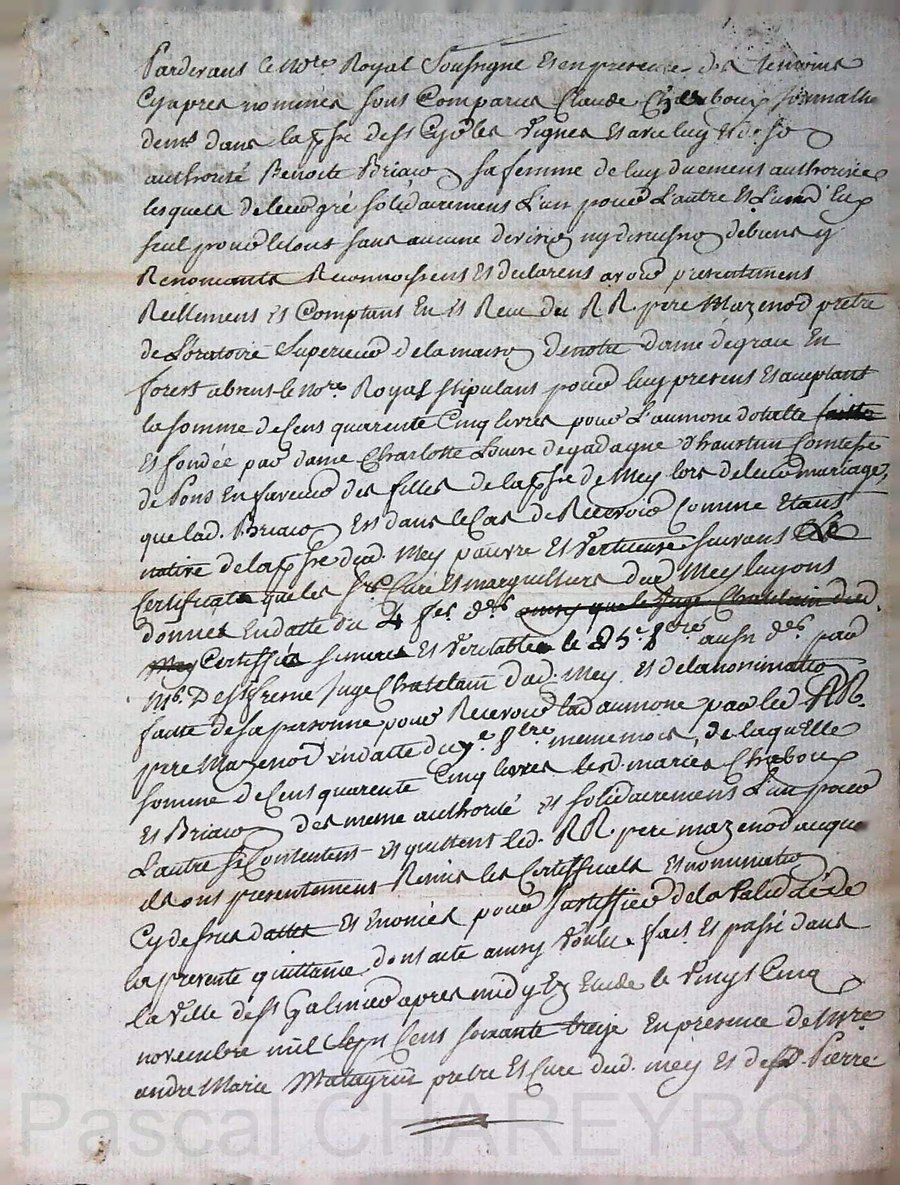 Pardevant le Nore Royal Soussigné et en presence des temoins
Cyapres nommés sont Comparus Claude Chaboux journalier
demt dans la psse de St Cyr les vignes et avec luy et de so
authorité Benoite Briaw sa femme de luy duement authorisée
lesquels de leur gré solidairement L'un pour L'autre et L'un d'Eux
seul pour le tout sans aucune divisio ny discusno de biens y
Renonçants Reconnoissent et declarent avoir presentement
Reellement et Comptant Eu et Reçu du RR pere Mazenod pretre
de Loratoire Superieur de la maiso de notre dame de grace En
forest absent le Nore Royal stipulant pour luy present et aceptant
la somme de Cent quarente Cinq livres pour L'aumone dotalle faitte
Et fondée par dame Charlotte Louise de gadagne d'haustun Comtesse
de Pons En faveur des filles de la psse de Mey lors de leur mariage,
que lad. Briaw Est dans le Cas de Recevoir Comme Etant
native de la psse dud. Mey pauvre Et vertueuse suivant Le
Certificats que les Srs Curé Et marguilliers dud Mey luy ont
donnés En datte du 4 dud. 
Mey Certiffié sincere Et veritable le 25e aussi par
Mr. Juge Chatelain dud. Mey. et de la nominatio
faitte de sa personne pour Recevoir lad aumone par led RR.
pere Mazenod En datte du 9bre meme mois, de laquelle
somme de Cent quarente Cinq livres lesd. mariés Chaboux
Et Briaw de meme authorité et solidairement L'un pour
L'autre se Contentent et quittent led. RR pere mazenod auquel
ils ont presentement Remis les Certificats Et nominatio
Cy dessus dattés Et Enoncés pour justiffier de la Validité de
la presente quittance, dont acte ainsy Voulu. fait Et passé dans
la ville de St Galmier apres midy En Etude le vingt Cinq
novembre mil Sept Cent soixante treize En presence de mre
andre Marie Matagrin pretre Et Curé dud. mey et de Sr Pierre
Pascal CHAREYRON